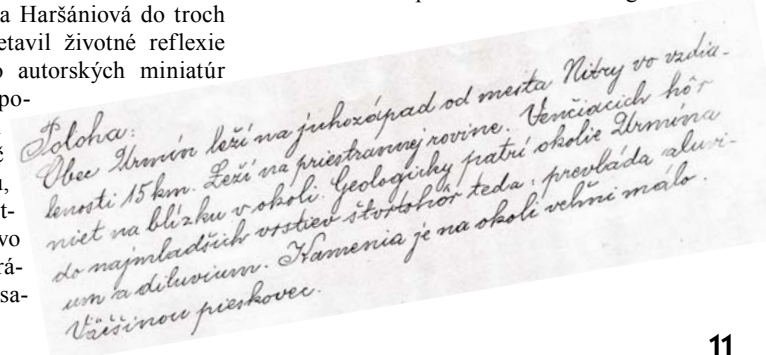 a Haršániová do troch
etavil životné reflexie
autorských miniatúr
po-
u,
t-
vo
rá-
sa-
Poloha:
Obec Urmín leží na juhozápad od mesta Nitry vo vzdia-
lenosti 15 km. Leží na priestrannej rovine. Venčiacich hôr
niet na blízku v okolí. Geologicky patrí okolie Urmína
do najmladších vrstiev štvrtohôr teda, prevláda aluvi-
um a diluvium. Kamenia je na okolí veľmi málo.
Väčšinou pieskovec.
11